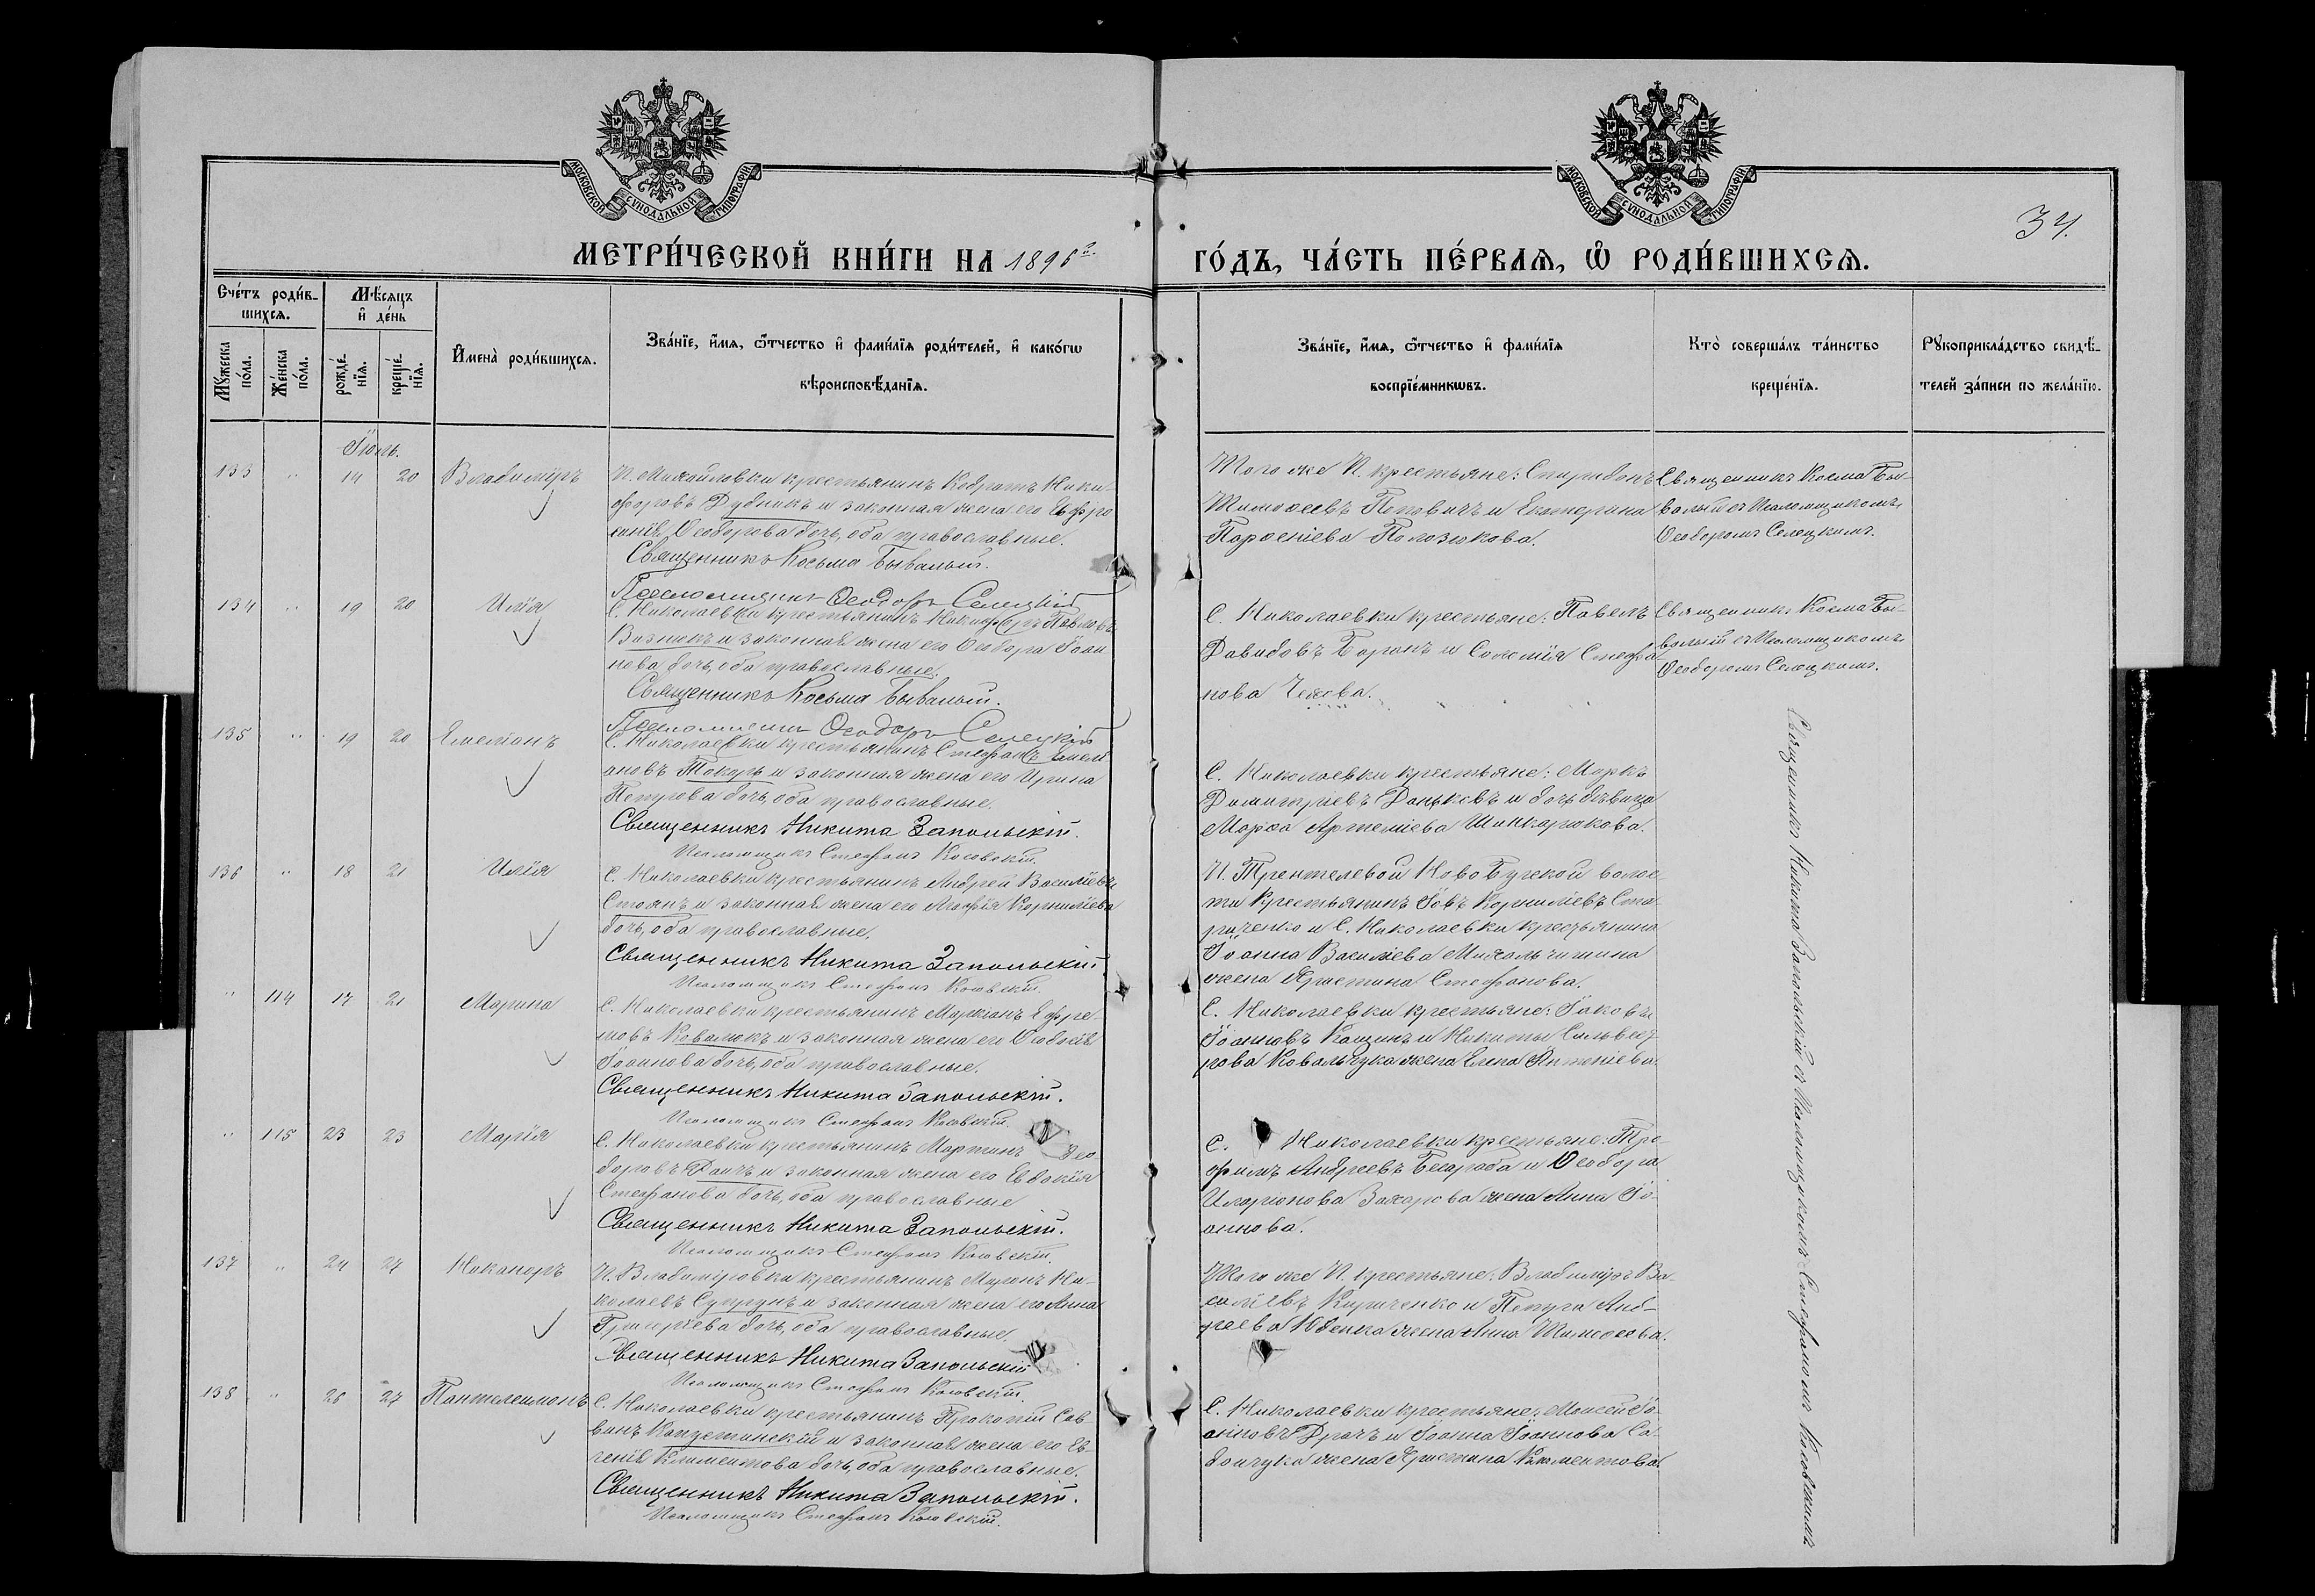 МОСКОВСКОЙ СУНОДАЛЬНОЙ ТИПОГРАФІИ
МОСКОВСКОЙ СУНОДАЛЬНОЙ ТИПОГРАФІИ
34.
МЕТРИ́ЧЕСКОЙ КНИ́ГИ НА 1896 г.
ГО́ДЪ, ЧА́СТЬ ПЕ́РВАѦ, Ѡ РОДИ́ВШИХСѦ.
Сче́тъ роди́в-
шихсѧ.
Мꙋжеска по́ла.
Же́нска по́ла.
Мѣ́сѧцъ и҆ де́нь
рожде́нїѧ.
креще́нїѧ.
И҆мена̀ роди́вшихсѧ.
Зва́нїе, и҆́мѧ, ѻ҆́тчество и҆ фами́лїѧ роди́телей, и҆ како́гѡ
вѣроисповѣ́данїѧ.
Зва́нїе, и҆́мѧ, ѻ҆́тчество и҆ фами́лїѧ
воспрїе́мникѡвъ.
Кто̀ соверша́лъ та́инство
креще́нїѧ.
Рꙋкоприкла́дство свидѣ́-
телей за́писи по жела́нїю.
Іюль.
133 " 14 20 Владиміръ
П. Михайловки крестьянинъ Кодратъ Ники-
форовъ Дубникъ и законная жена его Евфро
синія Ѳеодорова дочь, оба православные.
Священникъ Косьма Бывалый.
Псаломщикъ Ѳеодоръ Селецкій
Того же П. крестьяне: Спиридонъ
Тимоѳеевъ Петвичъ и Екатерина
Парѳеніева Полозюкова.
Священникъ Косма Бы-
валый съ Псаломщикомъ
Ѳеодоромъ Селецкимъ.
134 " 19 20 Илія
С. Николаевки крестьянинъ Никифоръ Павловъ
Вазникъ и законная жена его Ѳеодора Іоан
нова дочь, оба православные.
Священникъ Косьма Бывалый.
Псаломщикъ Ѳеодоръ Селецкій
С. Николаевки крестьяне: Павелъ
Давидовъ Баранъ и Соломія Стефа-
нова
Священникъ Косма Бы-
валый съ Псаломщикомъ
Ѳеодоромъ Селецкимъ.
135 " 19 20 Емеліанъ
С. Николаевки крестьянинъ Стефанъ Емели
ановъ Токарь и законная жена его Ирина
Петрова дочь, оба православные.
Священникъ Никита Запольскій.
Псаломщикъ Стефанъ Косовскій.
С. Николаевки крестьяне: Маркъ
Димитріевъ Данькевъ и дочь дѣвица
Марѳа Артеміева Шинкарюкова.
136 " 18 21 Илія
С. Николаевки крестьянинъ Андрей Василіевъ
Стоянъ и законная жена его Агафія Корниліева
дочь, оба православные.
Священникъ Никита Запольскій
Псаломщикъ Стефанъ Косовскій.
П. Трентелевой Ново Бугской волос
ти Крестьянинъ Іовъ Корниліевъ Ста-
риченко и С. Николаевки крестьянина
Іоанна Василіева Михальчишина
жена Христина Стефанова.
" 114 17 21 Марина
С. Николаевки крестьянинъ Маркіанъ Ефре-
мовъ Ковалюкъ и законная жена его Ѳеодосія
Іоаннова дочь, оба православные.
Священникъ Никита Запольскій.
Псаломщикъ Стефанъ Косовскій.
С. Николаевки крестьяне: Іаковъ
Іоанновъ Кащинъ и Никиты Сильвест
рова Ковальчука жена Елена Антоніева.
" 115 23 23 Марія
С. Николаевки крестьянинъ Мартинъ Ѳео
доровъ Даичъ и законная жена его Евдокія
Стефанова дочь, оба православные
Священникъ Никита Запольскій.
Псаломщикъ Стефанъ Косовскій.
С. Николаевки крестьяне: Тро-
фимъ Андреевъ Бесараба и Ѳеодора
Иларіонова Захарова жена Анна Іо-
аннова.
137 " 24 27 Никаноръ
П. Владиміровки крестьянинъ Миронъ Ни-
колаевъ Супрунъ и законная жена его Анна
Григоріева дочь, оба православные.
Священникъ Никита Запольскій
Псаломщикъ Стефанъ Косовскій.
Того же П. крестьяне: Владиміръ Ва-
силіевъ Кириченко и Петра Анд-
реева Юденка жена Анна Тимоѳеева.
138 " 26 27 Пантелеимонъ
С. Николаевки крестьянинъ Прокопій Сав-
винъ Капустинскій и законная жена его Ев-
генія Климентова дочь, оба православные.
Священникъ Никита Запольскій.
Псаломщикъ Стефанъ Косовскій.
С. Николаевки крестьяне: Моисей Іо-
анновъ Драчъ и Іоанна Іоаннова Са-
дончука жена Христина Климентова.
Священникъ Никита Запольскій съ Псаломщикомъ Стефаномъ Косовскимъ